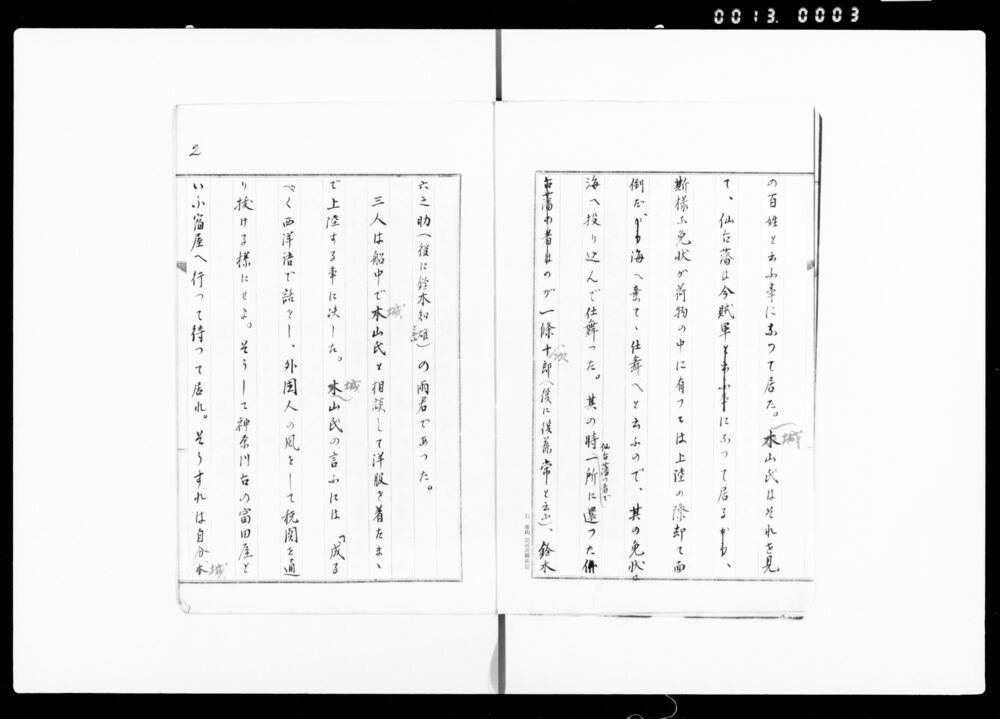 0013 0003
の百姓と云ふ事になつて居た。木山氏はそれを見
城
て、仙台藩は今賊軍と云ふ事になつて居るから、
斯様な免状が荷物の中に有つては上陸の際却て面
倒だから海へ棄てゝ仕舞へと云ふので、其の免状は
海へ投り込んで仕舞つた。其の時一所に還つた
仙台藩の者で
古藩の者はのが一條十郎(後に後藤常と云ふ)、鈴木
次
2
六之助(後に鈴木知雄)の両君であつた。
三人は船中で木山氏と相談して洋服を着たまゝ
城
で上陸する事に決した。木山氏の言ふには「成る
城
べく西洋語で話をし、外国人の風をして税関を通
り抜ける様にせよ。そうして神奈川台の富田屋と
いふ宿屋へ行つて待つて居れ。そうすれは自分木
城